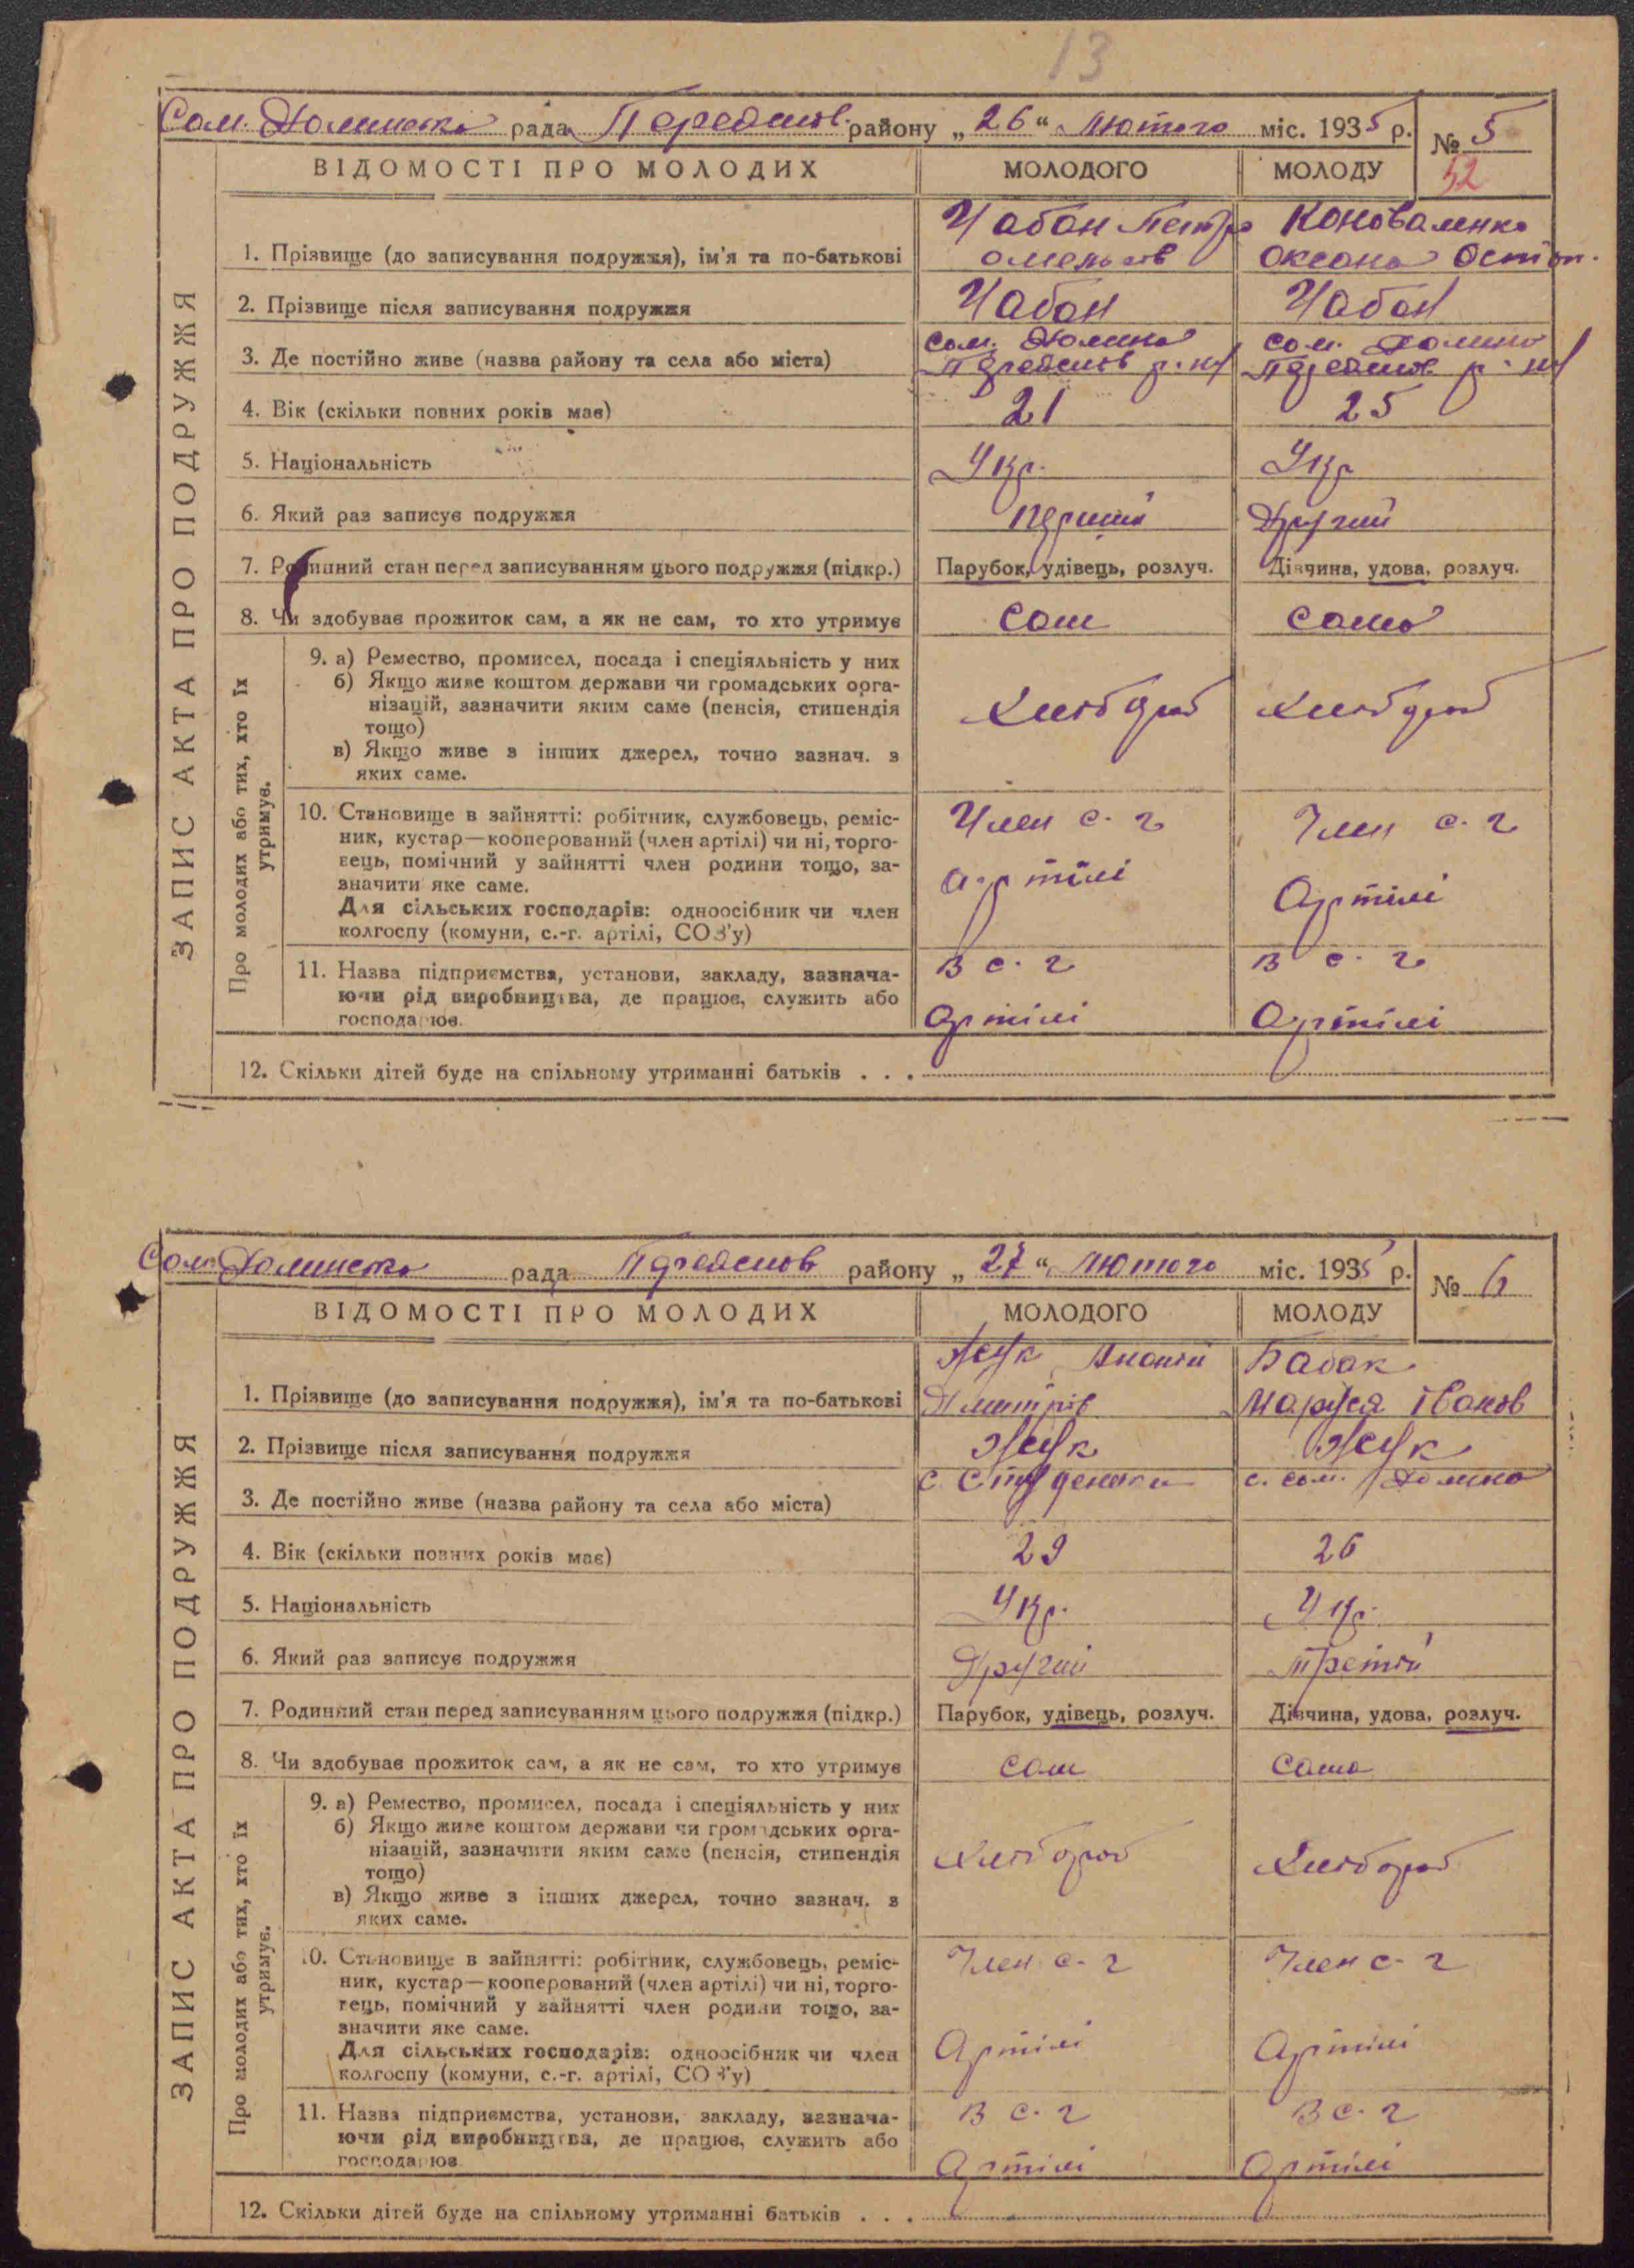 13
Сом. Долинська рада Переяслов. району „26“ Лютого міс. 1935 р.
№ 5
52
ВІДОМОСТІ ПРО МОЛОДИХ МОЛОДОГО МОЛОДУ
ЗАПИС АКТА ПРО ПОДРУЖЖЯ
Чабан Петро Коноваленко
1. Прізвище (до записування подружжя), ім'я та по-батькові Омельков Оксана Остап.
2. Прізвище після записування подружжя Чабан Чабан
Сом. Долина Сом. Долина
3. Де постійно живе (назва району та села або міста) Переяслов р-ну Переяслов р-ну
4. Вік (скільки повних років має) 21 25
5. Національність Укр. Укр
6. Який раз записує подружжя перший Другий
7. Родинний стан перед записуванням цього подружжя (підкр.) Парубок, удівець, розлуч. Дівчина, удова, розлуч.
8. Чи здобуває прожиток сам, а як не сам, то хто утримує сам сама
Про молодих або тих, хто їх утримує.
9. а) Ремество, промисел, посада і спеціяльність у них
б) Якщо живе коштом держави чи громадських орга-
нізацій, зазначити яким саме (пенсія, стипендія Хлібороб Хлібороб
тощо)
в) Якщо живе з інших джерел, точно зазнач. з
яких саме.
10. Становище в зайнятті: робітник, службовець, реміс- Член с. г Член с. г
ник, кустар—кооперований (член артілі) чи ні, торго-
вець, помічний у зайнятті член родини тощо, за-
значити яке саме. артілі Артілі
Для сільських господарів: одноосібник чи член
колгоспу (комуни, с.-г. артілі, СОЗ'у)
11. Назва підприємства, установи, закладу, зазнача- В с. г В с. г
ючи рід виробництва, де працює, служить або
господарює. Артілі Артілі
12. Скільки дітей буде на спільному утриманні батьків . . .
Сом. Долинська рада Переяслов району „27“ Лютого міс. 1935 р.
№ 6
ВІДОМОСТІ ПРО МОЛОДИХ МОЛОДОГО МОЛОДУ
ЗАПИС АКТА ПРО ПОДРУЖЖЯ
Жук Ананій Бабак
1. Прізвище (до записування подружжя), ім'я та по-батькові Дмитрів Маруся Іванов
2. Прізвище після записування подружжя Жук Жук
3. Де постійно живе (назва району та села або міста) с. Студеники с. Сом. Долина
4. Вік (скільки повних років має) 29 26
5. Національність Укр. Укр.
6. Який раз записує подружжя Другий Третій
7. Родинний стан перед записуванням цього подружжя (підкр.) Парубок, удівець, розлуч. Дівчина, удова, розлуч.
8. Чи здобуває прожиток сам, а як не сам, то хто утримує сам сама
Про молодих або тих, хто їх утримує.
9. а) Ремество, промисел, посада і спеціяльність у них
б) Якщо живе коштом держави чи громадських орга-
нізацій, зазначити яким саме (пенсія, стипендія Хлібороб Хлібороб
тощо)
в) Якщо живе з інших джерел, точно зазнач. з
яких саме.
10. Становище в зайнятті: робітник, службовець, реміс- Член с. г Член с. г
ник, кустар—кооперований (член артілі) чи ні, торго-
вець, помічний у зайнятті член родини тощо, за-
значити яке саме.
Для сільських господарів: одноосібник чи член Артілі Артілі
колгоспу (комуни, с.-г. артілі, СОЗ'у)
11. Назва підприємства, установи, закладу, зазнача- В с. г В с. г
ючи рід виробництва, де працює, служить або
господарює Артілі Артілі
12. Скільки дітей буде на спільному утриманні батьків . . .